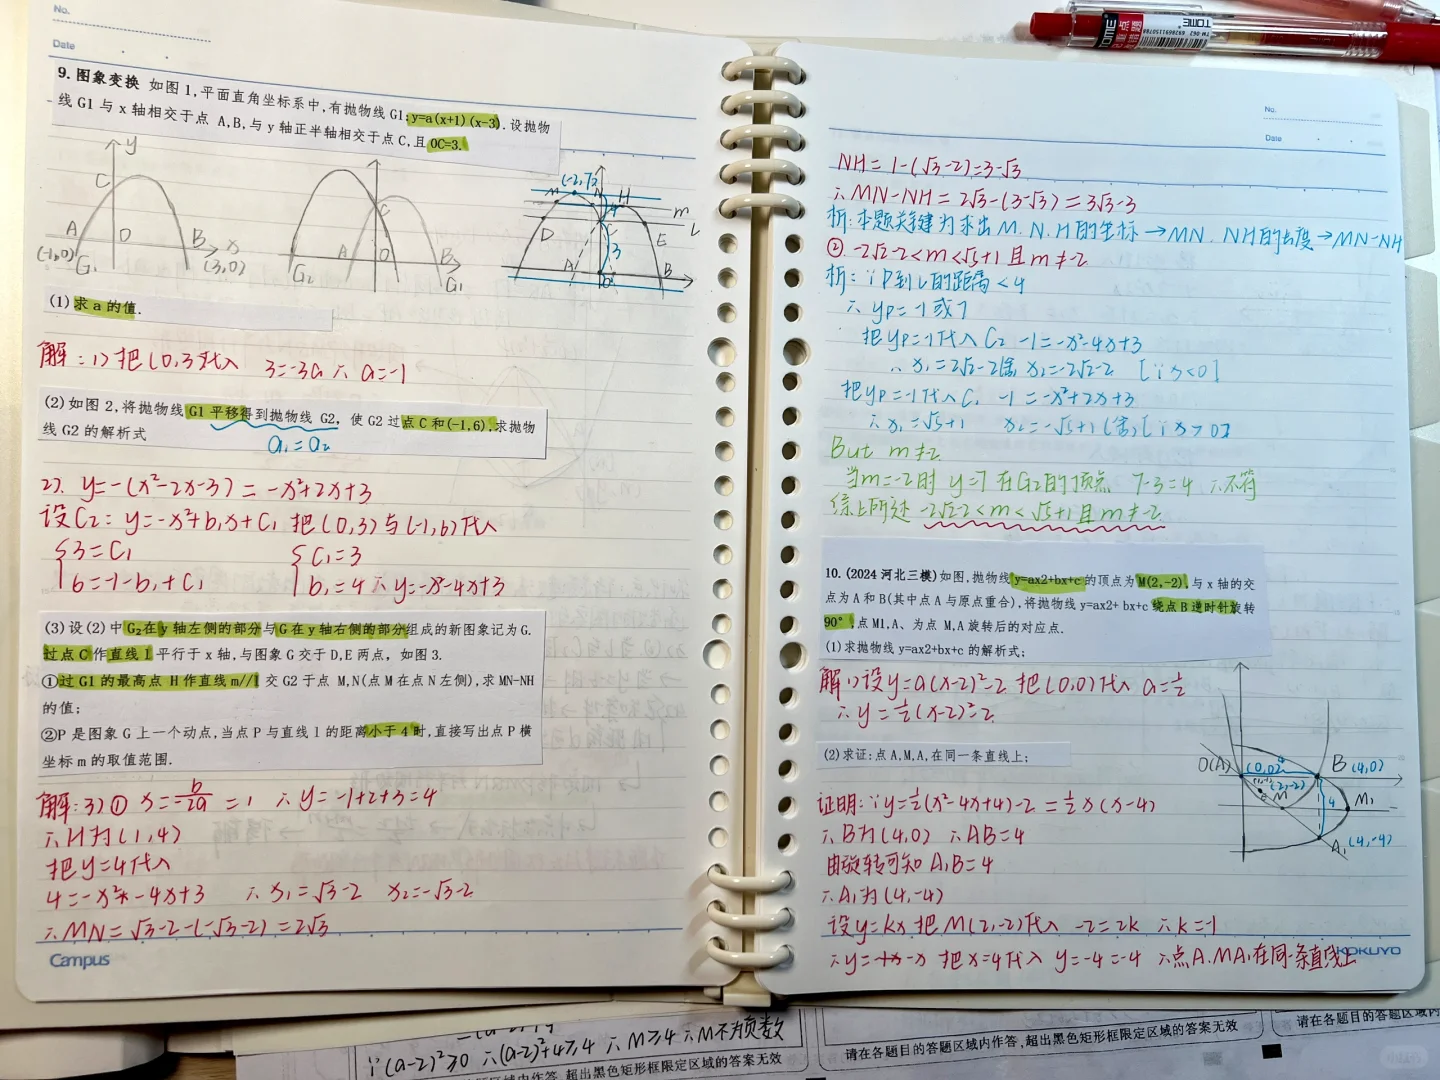 Date
9. 图象变换 如图1,平面直角坐标系中,有抛物线G1:y=a(x+1)(x-3).设抛物
线G1与x轴相交于点 A,B,与y轴正半轴相交于点C,且OC=3.
y
C
A
O
B
x
(-1,0)
(3,0)
G₁
C
A
O
B
G₂
G₁
(-2,7)
M
N
H
m
L
D
C
E
3
A
B
(1)求a的值.
解:1>把(0,3)代入 3=-3a ∴a=-1
(2)如图2,将抛物线G1平移得到抛物线G2, 使G2过点C和(-1,6).求抛物
线G2的解析式
a₁=a₂
2>. y=-(x²-2x-3)=-x²+2x+3
设C₂:y=-x²+b₁x+C₁ 把(0,3)与(-1,6)代入
{3=C₁ {C₁=3
6=-1-b₁+C₁ b₁=-4 ∴y=-x²-4x+3
(3)设(2)中G₂在y轴左侧的部分与G在y轴右侧的部分组成的新图象记为G.
过点C作直线l平行于x轴,与图象G交于D,E两点, 如图3.
①过G1的最高点H作直线m//l 交G2于点M,N(点M在点N左侧),求MN-NH
的值;
②P是图象G上一个动点,当点P与直线l的距离小于4时,直接写出点P横
坐标m的取值范围.
解:3>① x=-b/2a=1 ∴y=-1+2+3=4
∴H为(1,4)
把y=4代入
4=-x²-4x+3 ∴x₁=√3-2 x₂=-√3-2
∴MN=√3-2-(-√3-2)=2√3
Campus
No.
Date
NH=1-(√3-2)=3-√3
∴MN-NH=2√3-(3-√3)=3√3-3
析:本题关键为求出M.N.H的坐标→MN.NH的长度→MN-NH
②.-2√2-2<m<√5+1且m≠-2
析:∵P到L的距离<4
∴yp=-1或7
把yp=-1代入C₂ -1=-x²-4x+3
∴x₁=2√2-2舍 x₂=-2√2-2 [∵x<0]
把yp=-1代入C₁ -1=-x²+2x+3
∴x₁=√5+1 x₂=-√5+1(舍)[∵x>0]
But m≠-2
当m=-2时 y=7在G₂的顶点 7-3=4 ∴不符
综上所述 -2√2-2<m<√5+1且m≠-2
10.(2024河北三模)如图,抛物线y=ax2+bx+c的顶点为M(2,-2),与x轴的交
点为A和B(其中点A与原点重合),将抛物线y=ax2+ bx+c绕点B逆时针旋转
90°,点M1,A、为点M,A旋转后的对应点.
(1)求抛物线y=ax2+bx+c的解析式;
解:1>设y=a(x-2)²-2 把(0,0)代入 a=½
∴y=½(x-2)²-2
(2)求证:点A,M,A,在同一条直线上;
O(A)
(0,0)
B (4,0)
(2,-2)
M
4
M₁
A₁ (4,-4)
证明:∵y=½(x²-4x+4)-2=½x(x-4)
∴B为(4,0) ∴AB=4
由旋转可知A₁B=4
∴A₁为(4,-4)
设y=kx 把M(2,-2)代入 -2=2k ∴k=-1
∴y=-x 把x=4代入 y=-4=-4 ∴点A.MA₁在同一条直线上
KOKUYO
∵(a-2)²≥0 ∴(a-2)²+4≥4 ∴M≥4 ∴M不为负数
题区域内作答,超出黑色矩形框限定区域的答案无效
请在各题目的答题区域内作答,超出黑色矩形框限定区域的答案无效
请在各题目的答题区域内
TOME